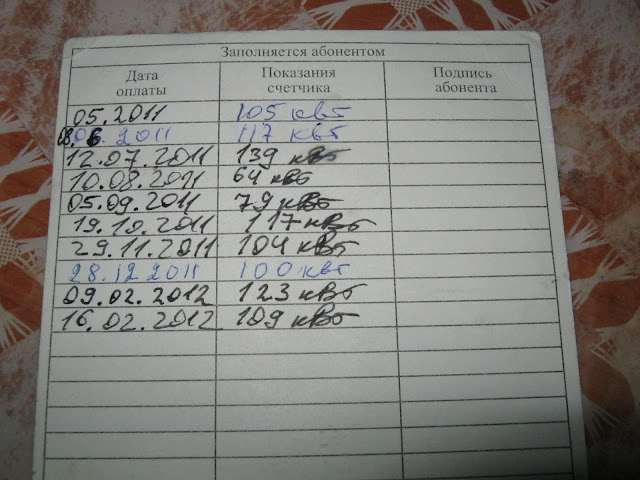 Заполняется абонентом
Дата оплаты Показания счетчика Подпись абонента
05.2011 105 квт
08.06.2011 117 квт
12.07.2011 139 квт
10.08.2011 64 квт
05.09.2011 79 кВт
19.10.2011 117 кВт
29.11.2011 104 кВт
28.12.2011 100 квт
09.02.2012 123 кВт
16.02.2012 109 кВт